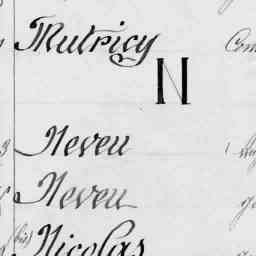 Mutricy Com
N
Neveu
Neveu
(bis) Nicolas